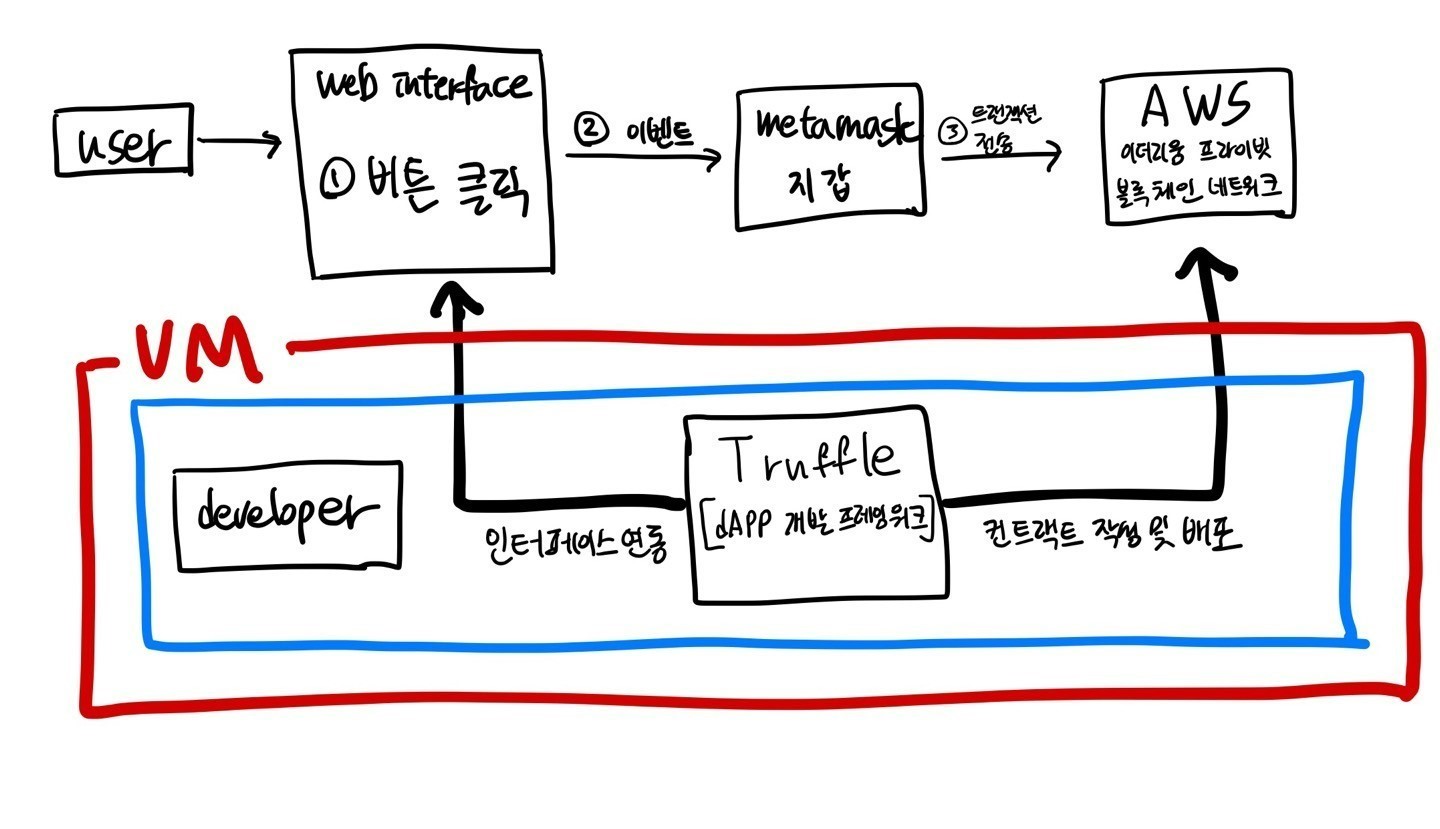 user
web interface
① 버튼 클릭
② 이벤트
metamask
지갑
③ 트랜잭션
전송
AWS
이더리움 프라이빗
블록체인 네트워크
VM
developer
Truffle
[dAPP 개발 프레임워크]
인터페이스 연동
컨트랙트 작성 및 배포